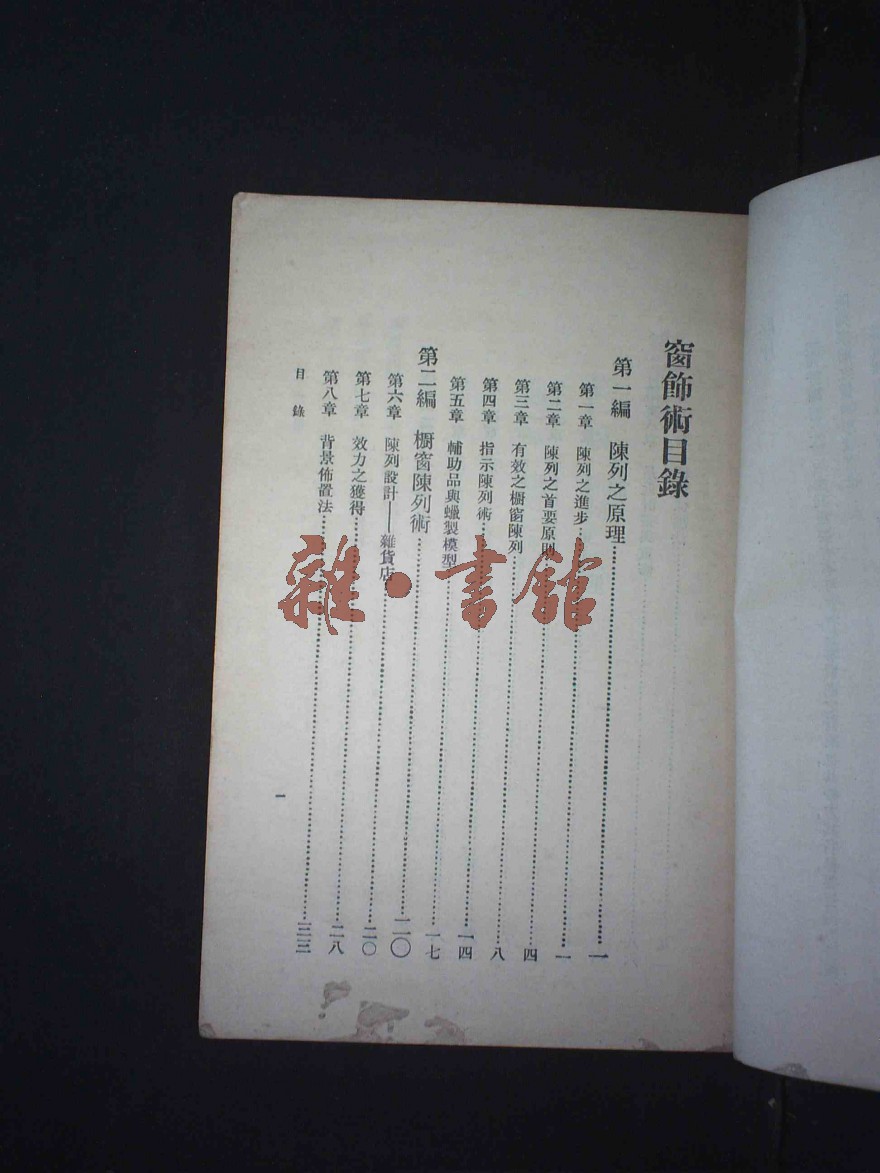 窗飾術目錄
第一編 陳列之原理……一
第一章 陳列之進步……一
第二章 陳列之首要原則……四
第三章 有效之櫥窗陳列……八
第四章 指示陳列術……一四
第五章 輔助品與蠟製模型……一七
第二編 櫥窗陳列術……二〇
第六章 陳列設計——雜貨店……二〇
第七章 效力之獲得……二八
第八章 背景佈置法……三三
目錄
一
雜·書館